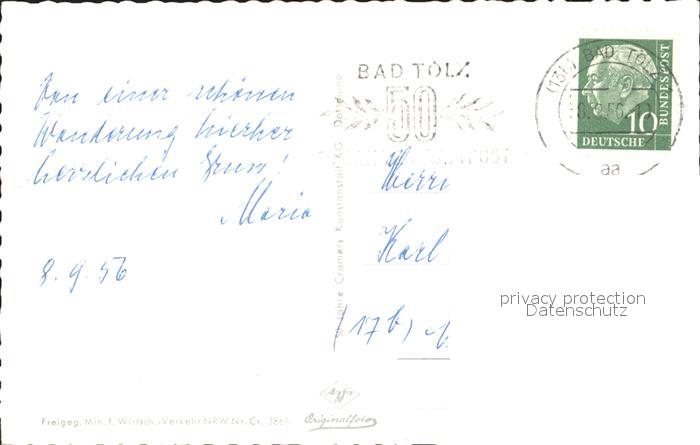 Von einer schönen
Wanderung hierher
herzlichen Gruss!
Maria
8.9.56
BAD TÖLZ
50
POST
(13b) BAD TÖLZ
8.9.56
aa
10
DEUTSCHE
BUNDESPOST
Herrn
Karl
(17b)
privacy protection
Datenschutz
Jahre Cramers Kunstanstalt KG. Dortmund
Agfa
Originalfoto
Freigeg. Min. f. Wirtsch. u. Verkehr NRW. Nr. Cr. 3865